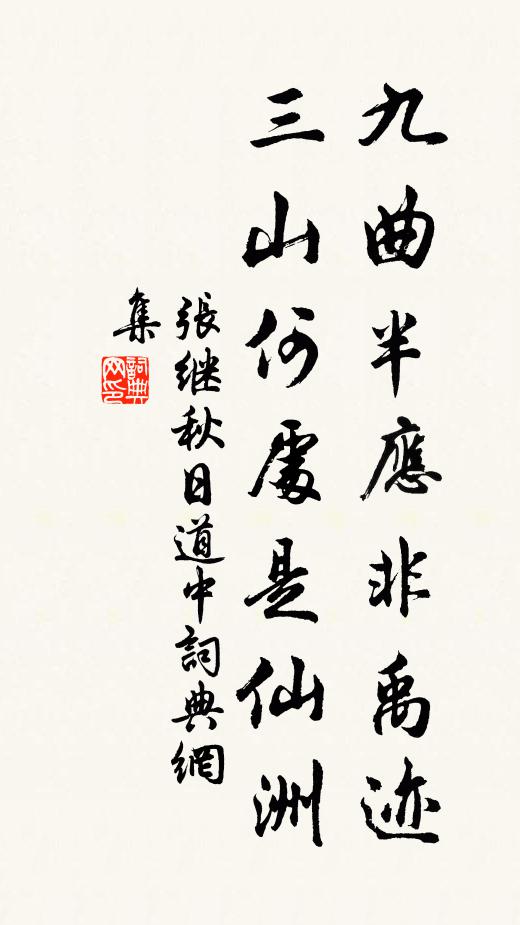 九曲半應非禹迹
三山何處是仙洲
張继秋日道中詞典網
集
詞典
网印